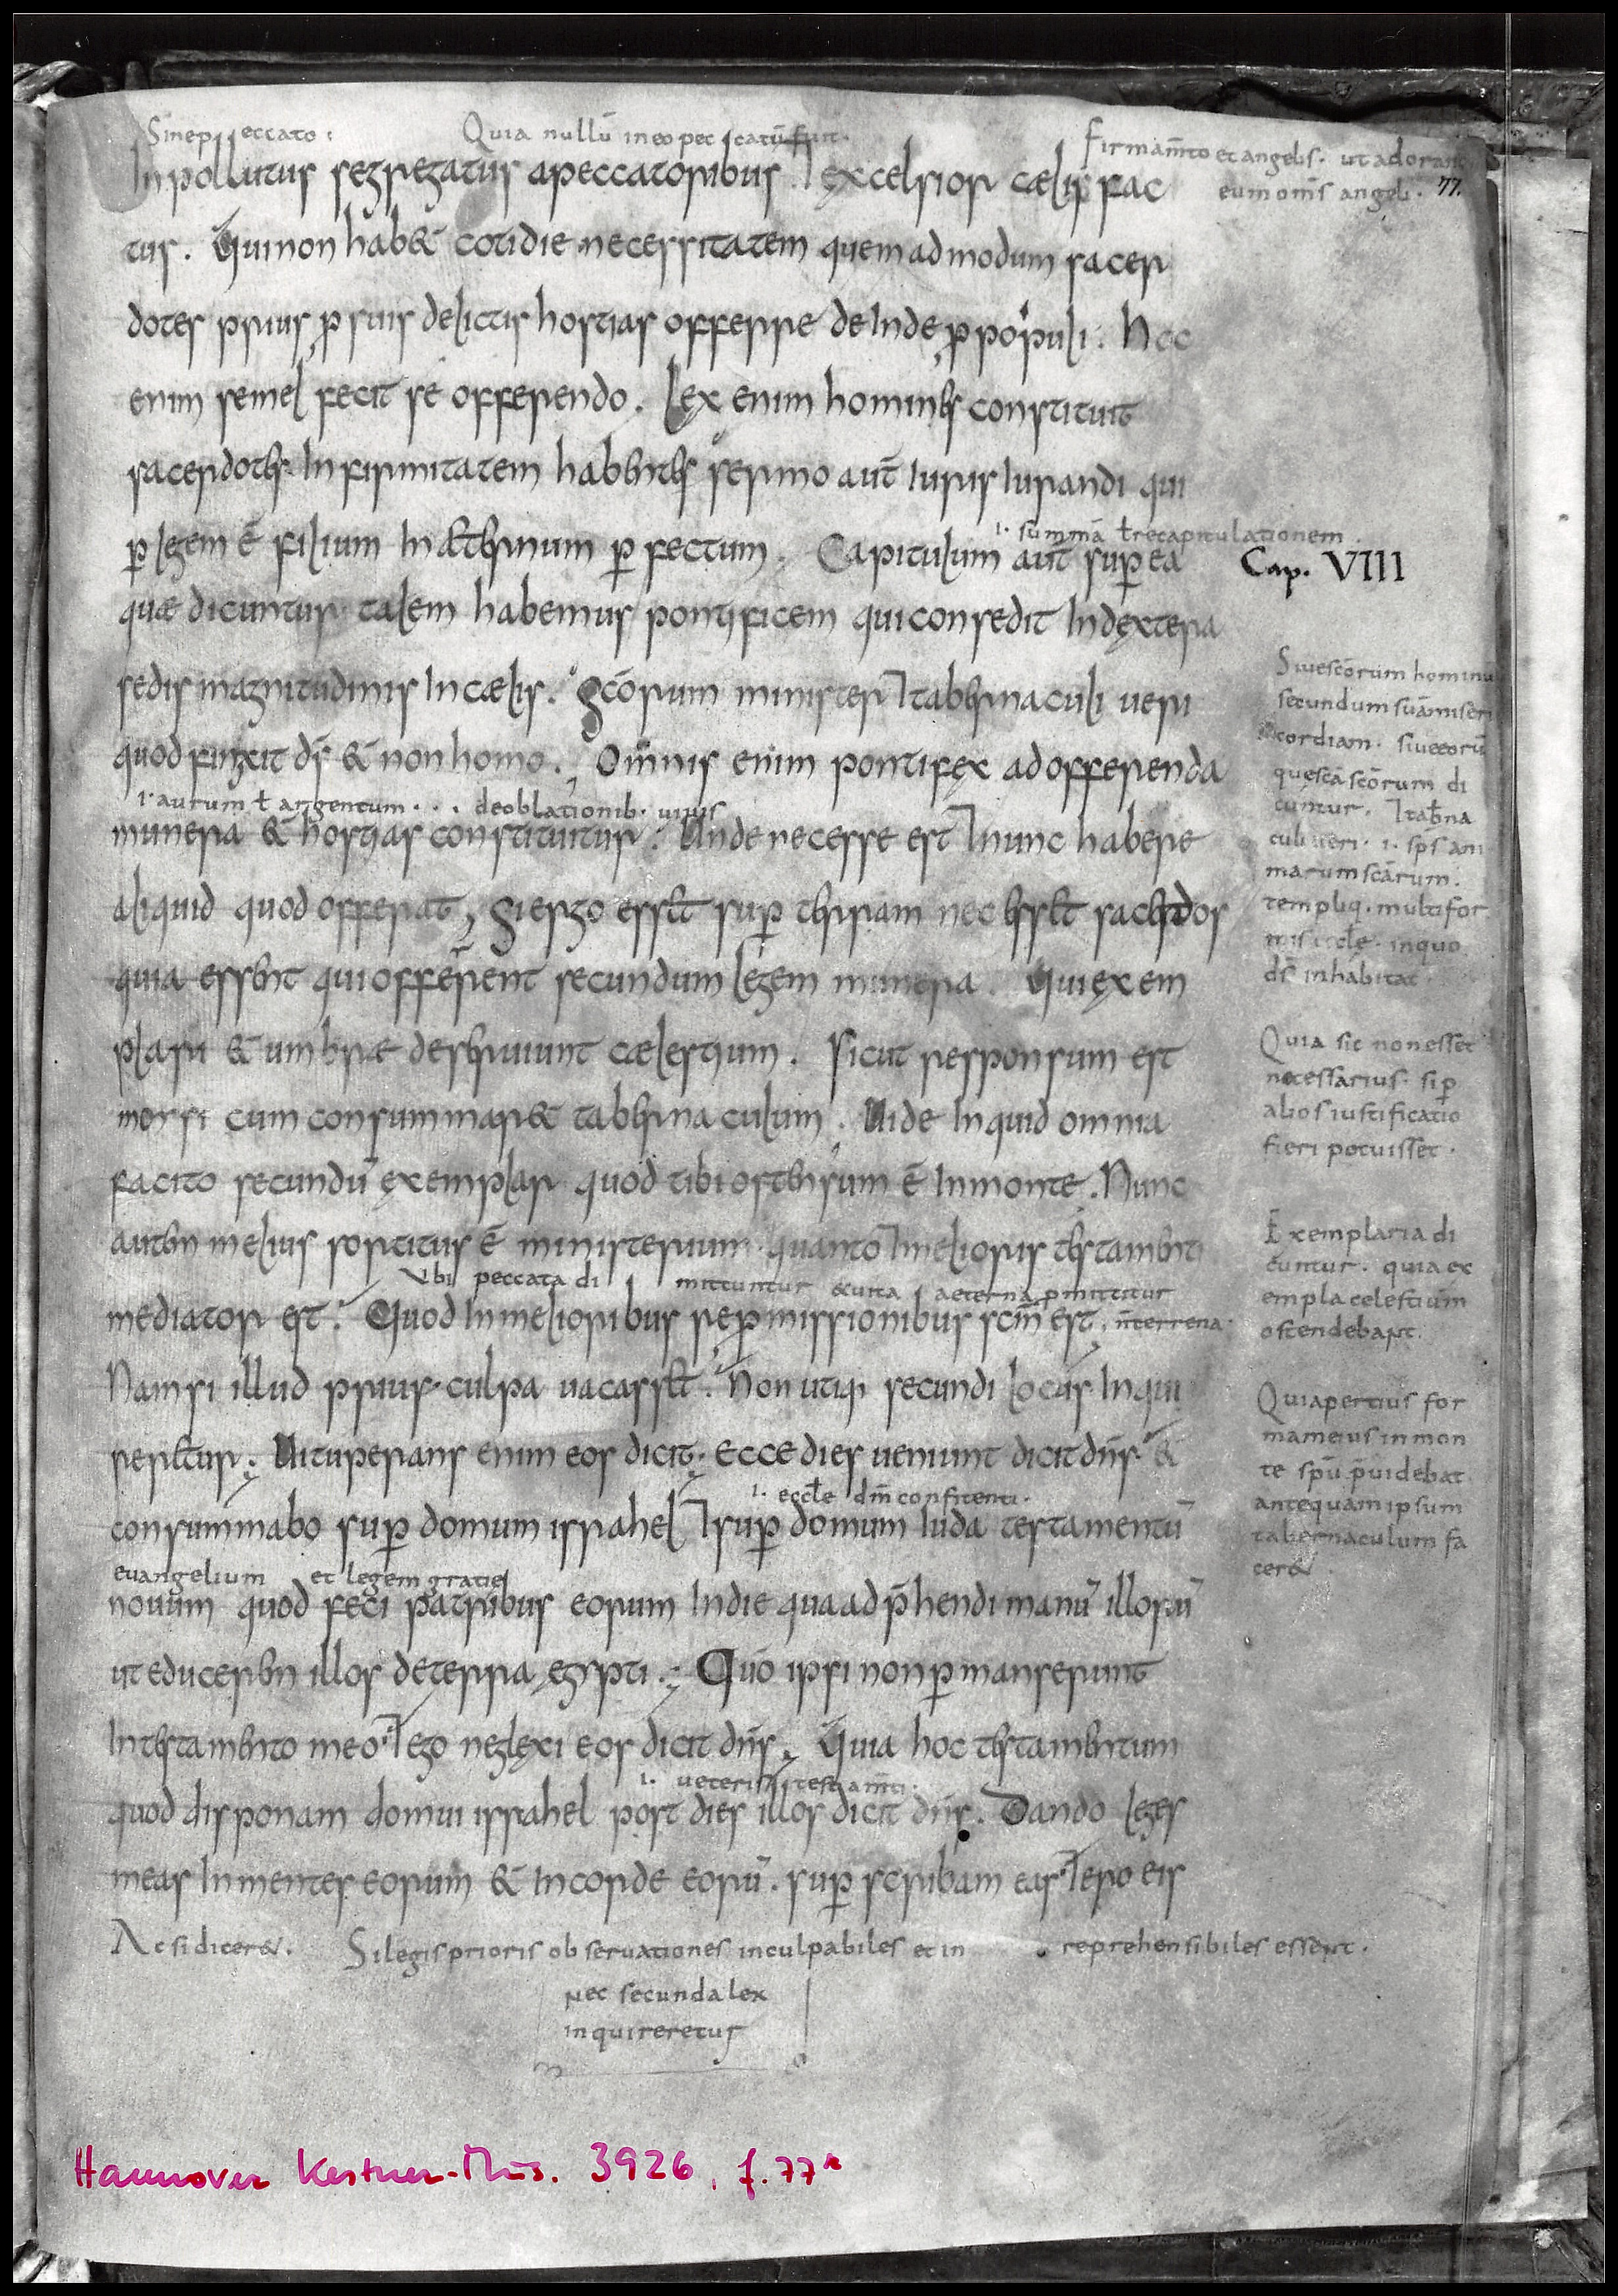 Sine peccato: Quia nullū in eo peccatū fuit. Firmam̄to et angelis. ut adorant
eum om̄s angeli. 77.
Inpollutus segregatus apeccatoribus. ⁊ excelsior cælis fac
tus. Qui non hab& cotidie necessitatem quem ad modum sacer
dotes prius p̱ suis delictis hostias offerre deinde p̱ populi. Hoc
enim semel fecit se offerendo. Lex enim homines constituit
sacerdotes. Infirmitatem habentes sermo aūt iuris iurandi qui
p̱ legem ē filium In æternum p̱fectum. Capitulum aūt sup̱ ea
.i. summā ł recapitulationem.
Cap. VIII
quæ dicuntur. talem habemus pontificem qui consedit In dextera
sedis magnitudinis In cælis. Sc̄orum minister ⁊ tabernaculi ueri
quod finxit ds̄ & non homo. Omnis enim pontifex ad offerenda
.i. aurum ł argentum... de oblationib. uiuis
munera & hostias constituitur. Unde necesse est ⁊ nunc habere
aliquid quod offerat; Si ergo esset sup̱ terram nec esset sacerdos
quia essent qui offerrent secundum legem munera. Qui exem
plari & umbræ deseruiunt cælestium. Sicut responsum est
morsi cum consummar& tabernaculum. Uide Inquid omnia
facito secundū exemplar quod tibi ostensum ē In monte. Nunc
autem melius sortitus ē ministerium. quanto ⁊ melioris testamenti
Vbi peccata dimittuntur & uita aeterna p̱mittitur
mediator est. Quod In melioribus rep̱missionibus sc̄m est. n̄ terrena.
Nam si illud prius culpa uacasset. Non utiqi secundi locus Inqui
reretur; Uituperans enim eos dicit; Ecce dies ueniunt dicit dn̄s &
.i. eccłe dm̄ confitenti.
consummabo sup̱ domum israhel ⁊ sup̱ domum Iuda testamentū
euangelium et legem gratie
nouum quod feci patribus eorum In die qua adp̄hendi manū illorū
ut educerem illos de terra egypti.; Quō ipsi non p̱manserunt
In testamento meo. ⁊ ego neglexi eos dicit dn̄s. Quia hoc testamentum
.i. ueteris testam̄ti.
quod disponam domui israhel post dies illos dicit dn̄s. Dando leges
meas In mentes eorum & In corde eorū. sup̱ scribam eas. ⁊ ero eis
Siue sc̄orum hominū
secundum suā miseri
cordiam. siue eorū
que sc̄a sc̄orum di
cuntur. ⁊ tab̄na
culi ueri. i. sp̄s ani
marum sc̄arum.
templiq. multifor
mis eccłe. in quo
ds̄ inhabitat.
Quia sic non esset
necessarius. si p̱
alios iustificatio
fieri potuisset.
Exemplaria di
cuntur. quia ex
empla celestium
ostendebant.
Qui apertius for
mam eius in mon
te sp̄u p̄uidebat
antequam ipsum
tabernaculum fa
cer&.
Ac si dicer&. Si legis prioris obseruationes inculpabiles et in reprehensibiles essent.
nec secunda lex
inquireretur
Hannover Kestner-Mus. 3926, f. 77ʳ